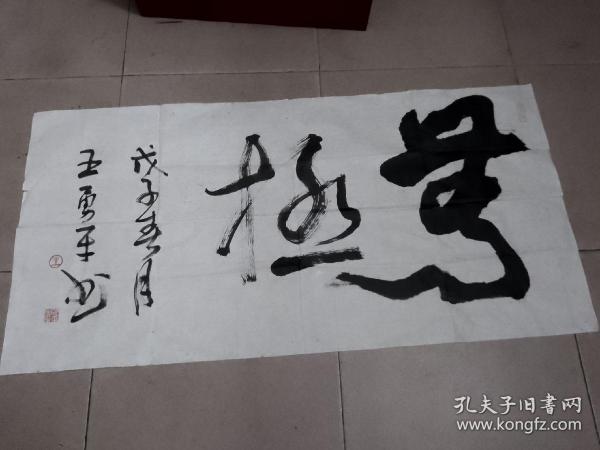 無極
戊子春月
王勇平书
孔夫子旧書网
www.kongfz.com